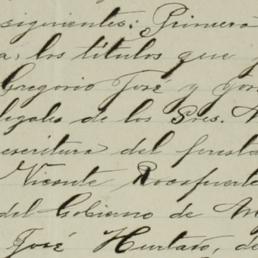 siguientes: Primero
a, los títulos que
Gregorio José y
legales de los Sres.
escritura del
Vicente Rocafuerte
del Gobierno de
José Hurtado, de